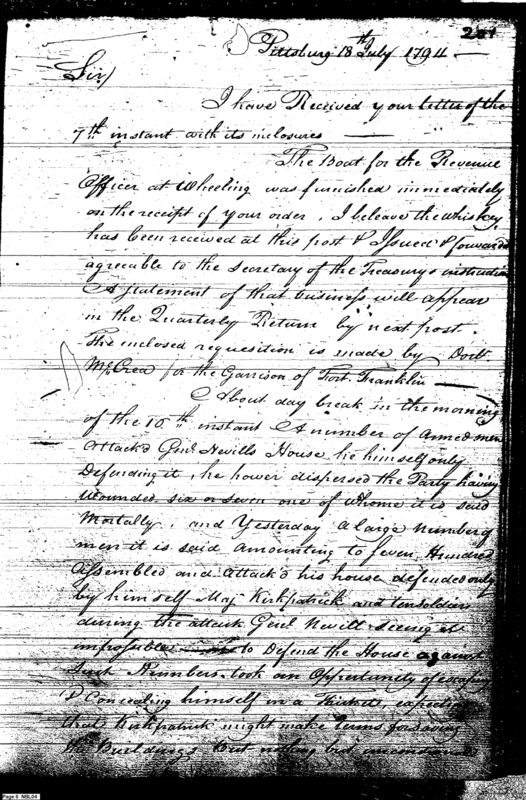 201
Pittsburg 18th July 1794
Sir)
I have Received your letter of the
7th instant with its inclosures
The Boat for the Revenue
Officer at Wheeling was furnished immediately
on the receipt of your order. I beleave the whiskey
has been received at this post & Issued & forwarded
agreeable to the Secretary of the Treasurys instruction
A Statement of that business will appear
in the Quarterly Return by next post.
The enclosed requesition is made by Doctr
McCrea for the Garrison of Fort Franklin
About day break in the morning
of the 16th instant A number of armed men
Attack'd Genl Nevills House he himself only
Defending it, he hower dispersed the Party having
wounded six or seven one of whome it is said
Mortally, and Yesterday a large Number of
men it is said amounting to seven Hundred
Assembled and attack'd his house defended only
by himself Maj Kirkpatrick and ten soldiers
during the attack Genl Nevill seeing it
impossible to Defend the House against
such Numbers took an Oppertunety of escaping
& Concealing himself in a Thicket, expecting
that Kirkpatrick might make terms for saving
the Buildings but nothing but unconditional
Page 6 NBL04